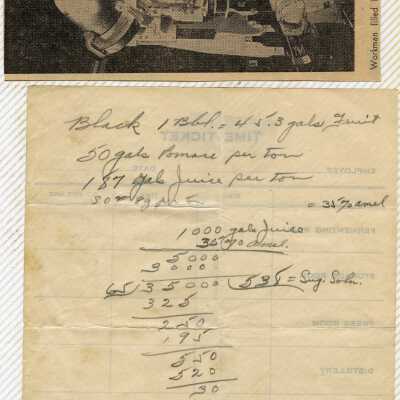 Workmen filled
Black 1 Bbl. = 45.3 gals Fruit
TIME TICKET
50 gals Pomace per ton
EMPLOYEE
DATE
187 gal Juice per ton
= 35% amel
1000 gals Juice
FERMENTING ROOM
35% amel.
5000
3000
65 35000 (538 = Sug. Soln.
325
250
PRESS ROOM
195
550
DISTILLERY
520
30